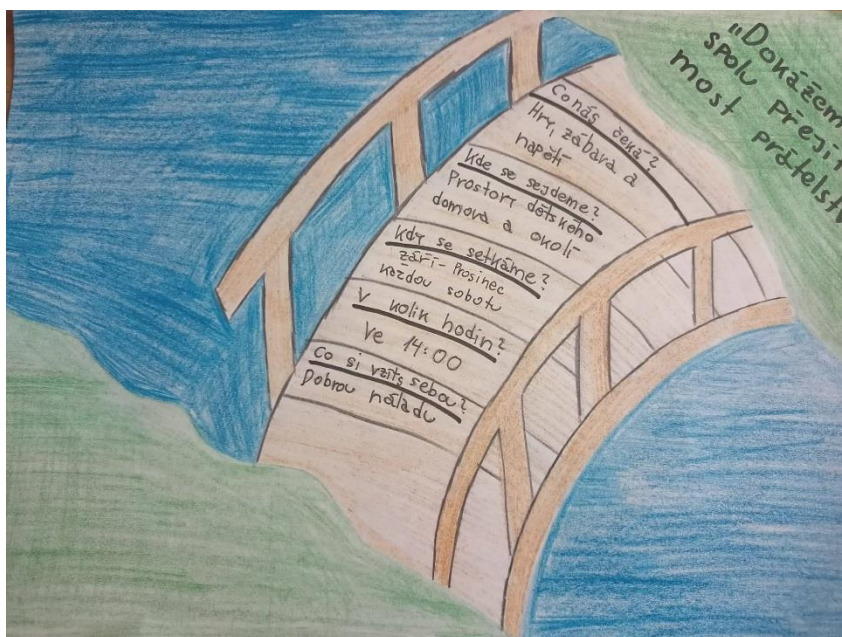 "Dokážem
spolu přejít
most přátelstv
Co nás čeká?
Hry, zábava a
napětí
Kde se sejdeme?
Prostory dětského
domova a okolí
Kdy se setkáme?
Září - Prosinec
každou sobotu
V kolik hodin?
Ve 14:00
Co si vzít s sebou?
Dobrou náladu